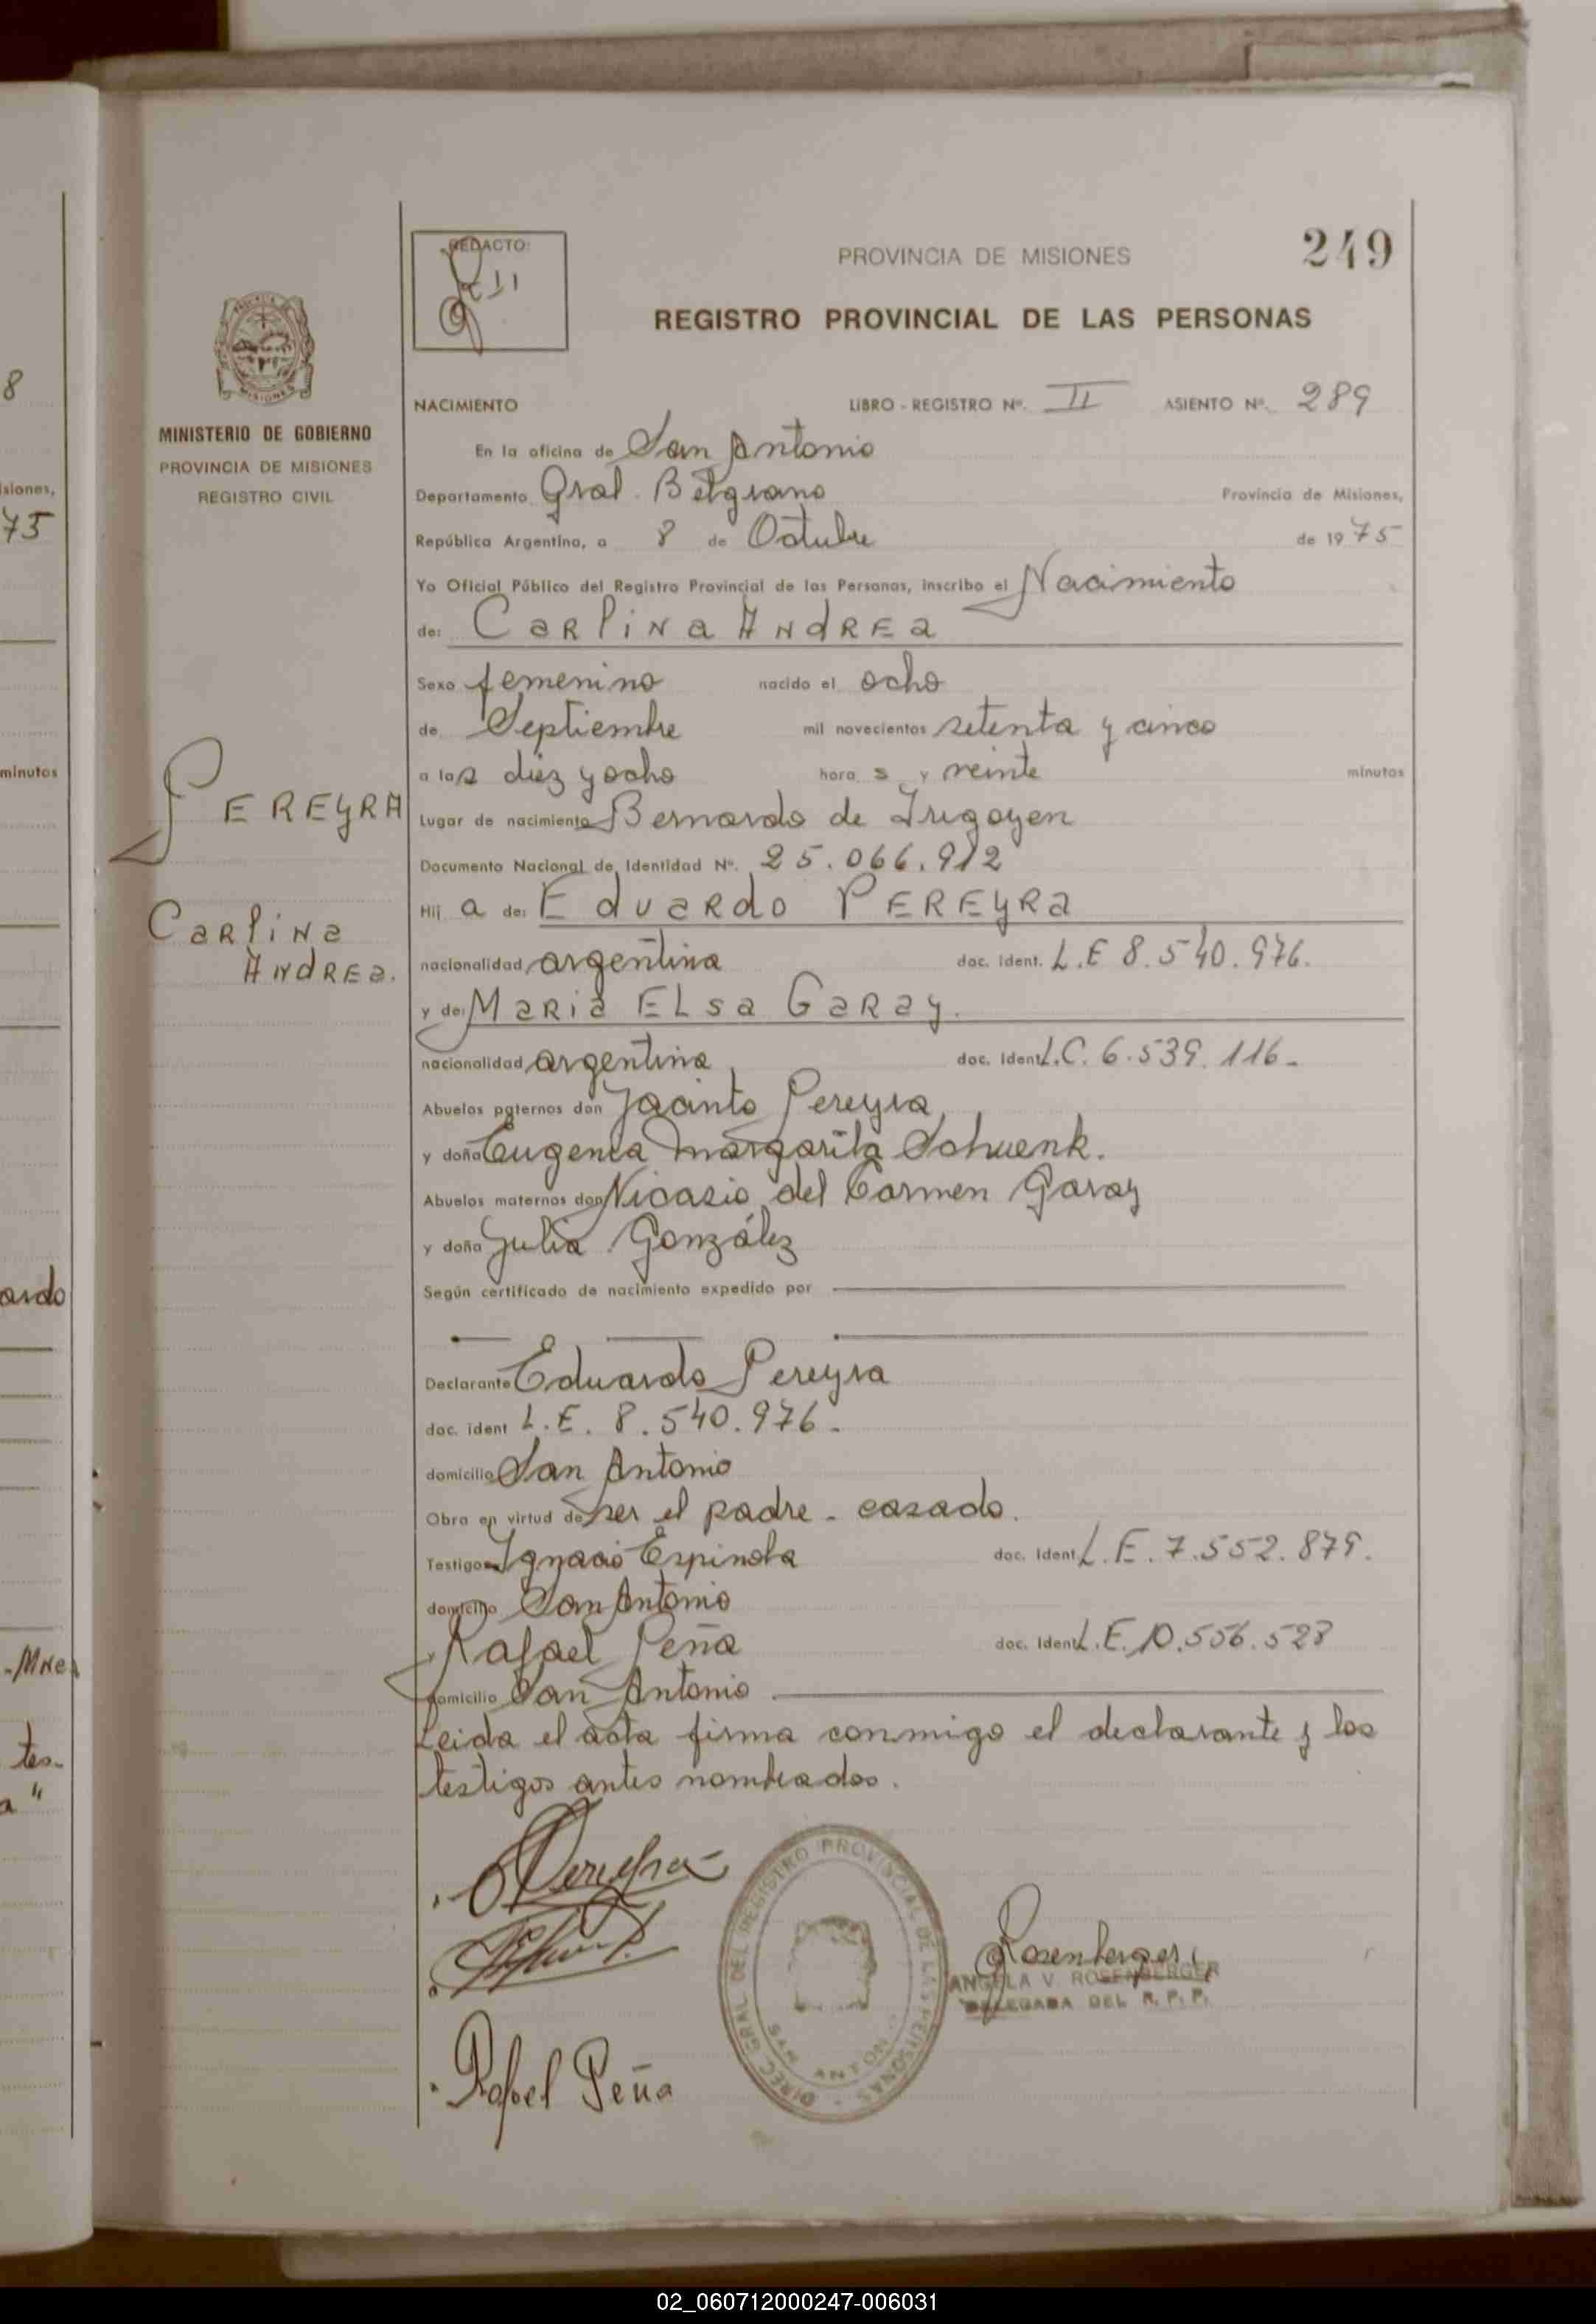 8
isiones,
75
minutos
ardo
tes-
a "
REDACTO:
PROVINCIA DE MISIONES
249
REGISTRO PROVINCIAL DE LAS PERSONAS
MISIONES
MINISTERIO DE GOBIERNO
PROVINCIA DE MISIONES
REGISTRO CIVIL
NACIMIENTO LIBRO - REGISTRO Nº. II ASIENTO Nº. 289
En la oficina de San Antonio
Departamento Gral. Belgrano Provincia de Misiones,
República Argentina, a 8 de Octubre de 1975
Yo Oficial Público del Registro Provincial de las Personas, inscribo el Nacimiento
de: Carlina Andrea
Sexo femenino nacido el ocho
de Septiembre mil novecientos setenta y cinco
a las diez y ocho hora s y veinte minutos
PEREYRA
Lugar de nacimiento Bernardo de Irigoyen
Documento Nacional de Identidad Nº. 25.066.912
Carlina
Andrea.
Hij a de: Eduardo PEREYRa
nacionalidad argentina doc. ident. L.E 8.540.976.
y de: Maria Elsa Garay.
nacionalidad argentina doc. ident. L.C. 6.539.116-
Abuelos paternos don Jacinto Pereyra
y doña Eugenia Margarita Schuenk.
Abuelos maternos don Nicasio del Carmen Garay
y doña Julia González
Según certificado de nacimiento expedido por
Declarante Eduardo Pereyra
doc. ident L.E. 8.540.976-
domicilio San Antonio
Obra en virtud de ser el padre - casado.
Testigos Ignacio Espinola doc. ident. L.E. 7.552.879.
domicilio San Antonio
y Rafael Peña doc. ident. L.E. 10.556.528
domicilio San Antonio
Leida el acta firma conmigo el declarante y los
testigos antes nombrados.
Pereyra
Rafael Peña
DIREC. GRAL. DEL REGISTRO PROVINCIAL DE LAS PERSONAS
SAN ANTONIO
Rosenberger
ANGELA V. ROSENBERGER
DELEGADA DEL R. P. P.
02_060712000247-006031